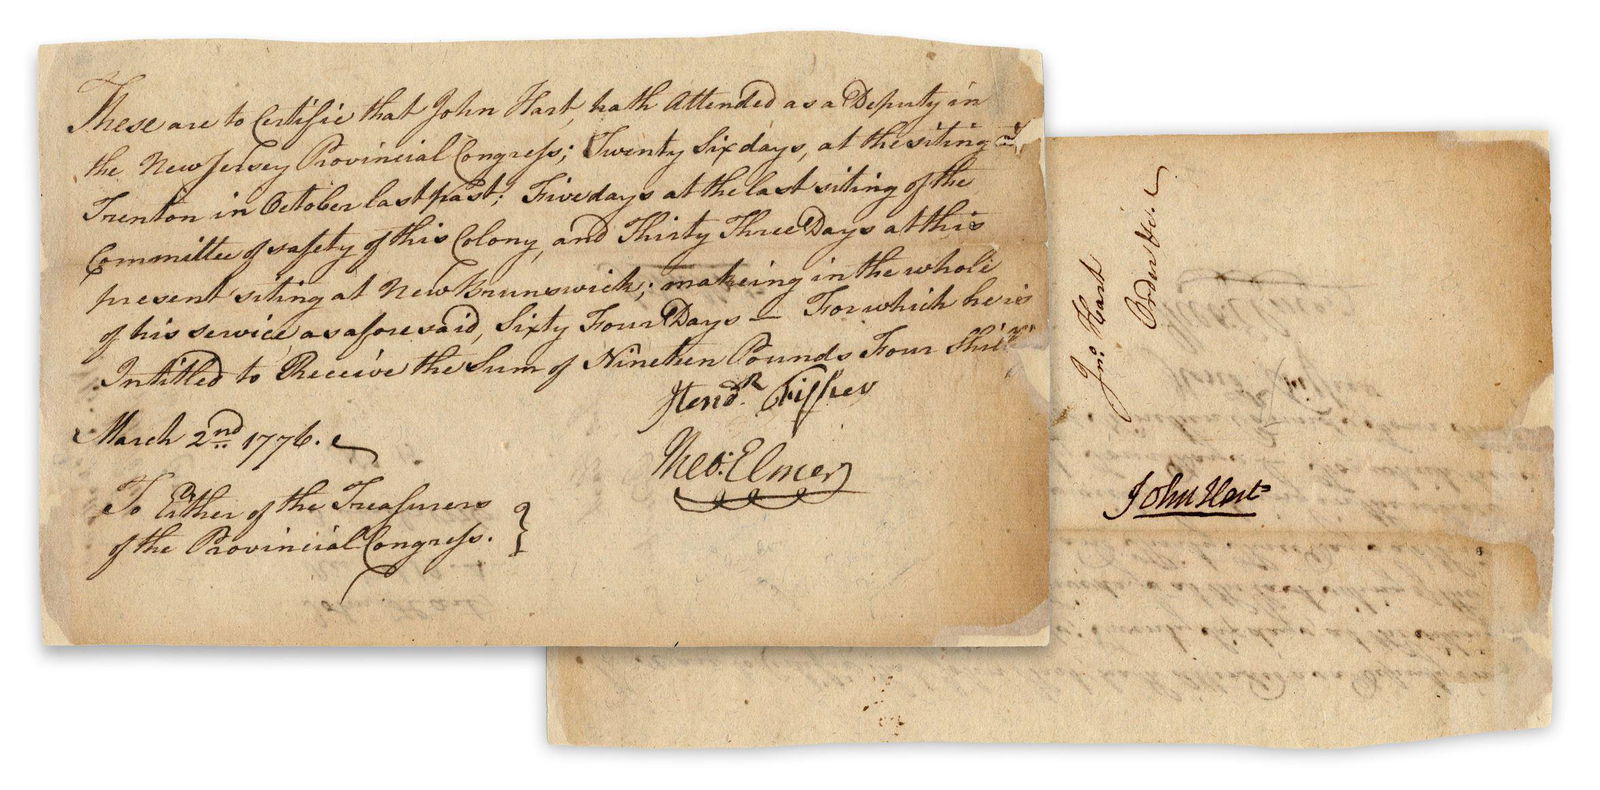 These are to Certifie that John Hart, hath Attended as a Deputy in
the New Jersey Provincial Congress; Twenty Six days, at the siting
Trenton in October last past; Five days at the last siting of the
Committee of safety of this Colony, and Thirty Three Days at this
present siting at New Brunswick; makeing in the whole
of his service as aforesaid, Sixty Four Days — For which he is
Intitled to Receive the Sum of Nineteen Pounds Four
Hend.k Fisher
March 2nd. 1776.
Theo: Elmer
To Either of the Treasurers
of the Provincial Congress. }
Jno. Hart
Order &c.
John Hart